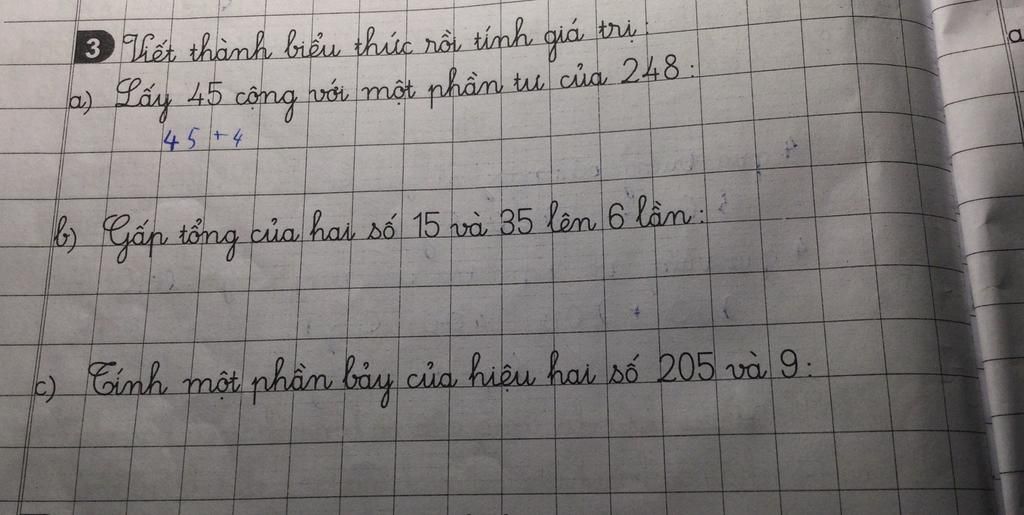 3 Viết thành biểu thức rồi tính giá trị:
a) Lấy 45 cộng với một phần tư của 248:
45 + 4
b) Gấp tổng của hai số 15 và 35 lên 6 lần:
c) Tính một phần bảy của hiệu hai số 205 và 9:
a